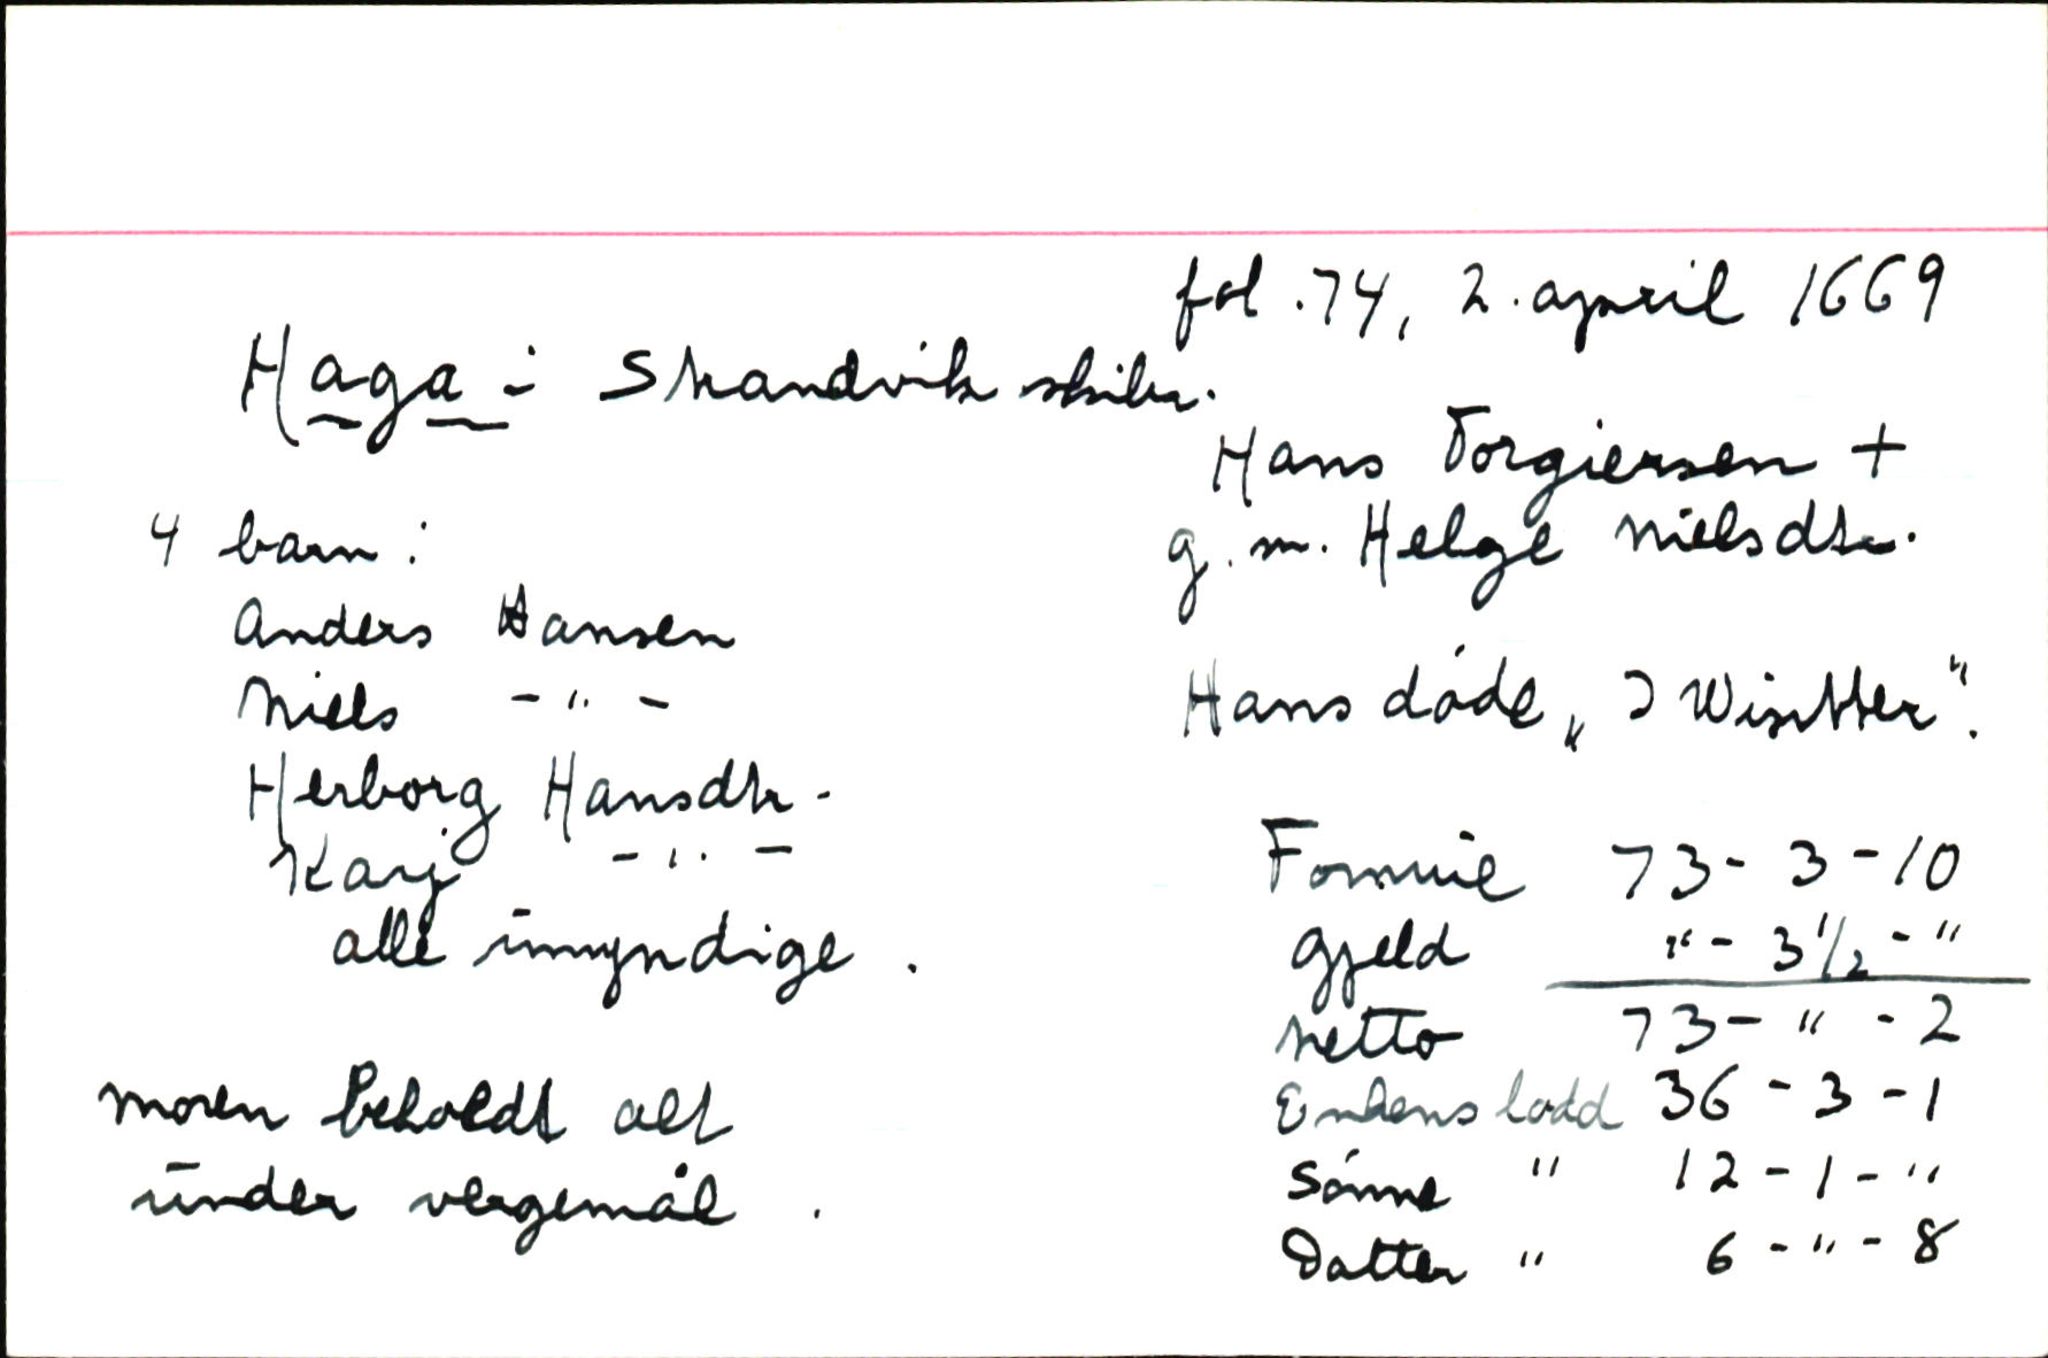 fol. 74, 2. april 1669
Haga i Strandvik skibr.
Hans Torgiersen +
g. m. Helge Nielsdtr.
4 barn:
Anders Hansen
Niels -"-
Herborg Hansdtr.
Karj -"-
alle umyndige.
Hans døde „J Wintter".
moren beholdt alt
under vergemål.
Formue 73 - 3 - 10
Gjeld " - 3 1/2 - "
Netto 73 - " - 2
Enkens lodd 36 - 3 - 1
Sønne " 12 - 1 - "
Datter " 6 - " - 8